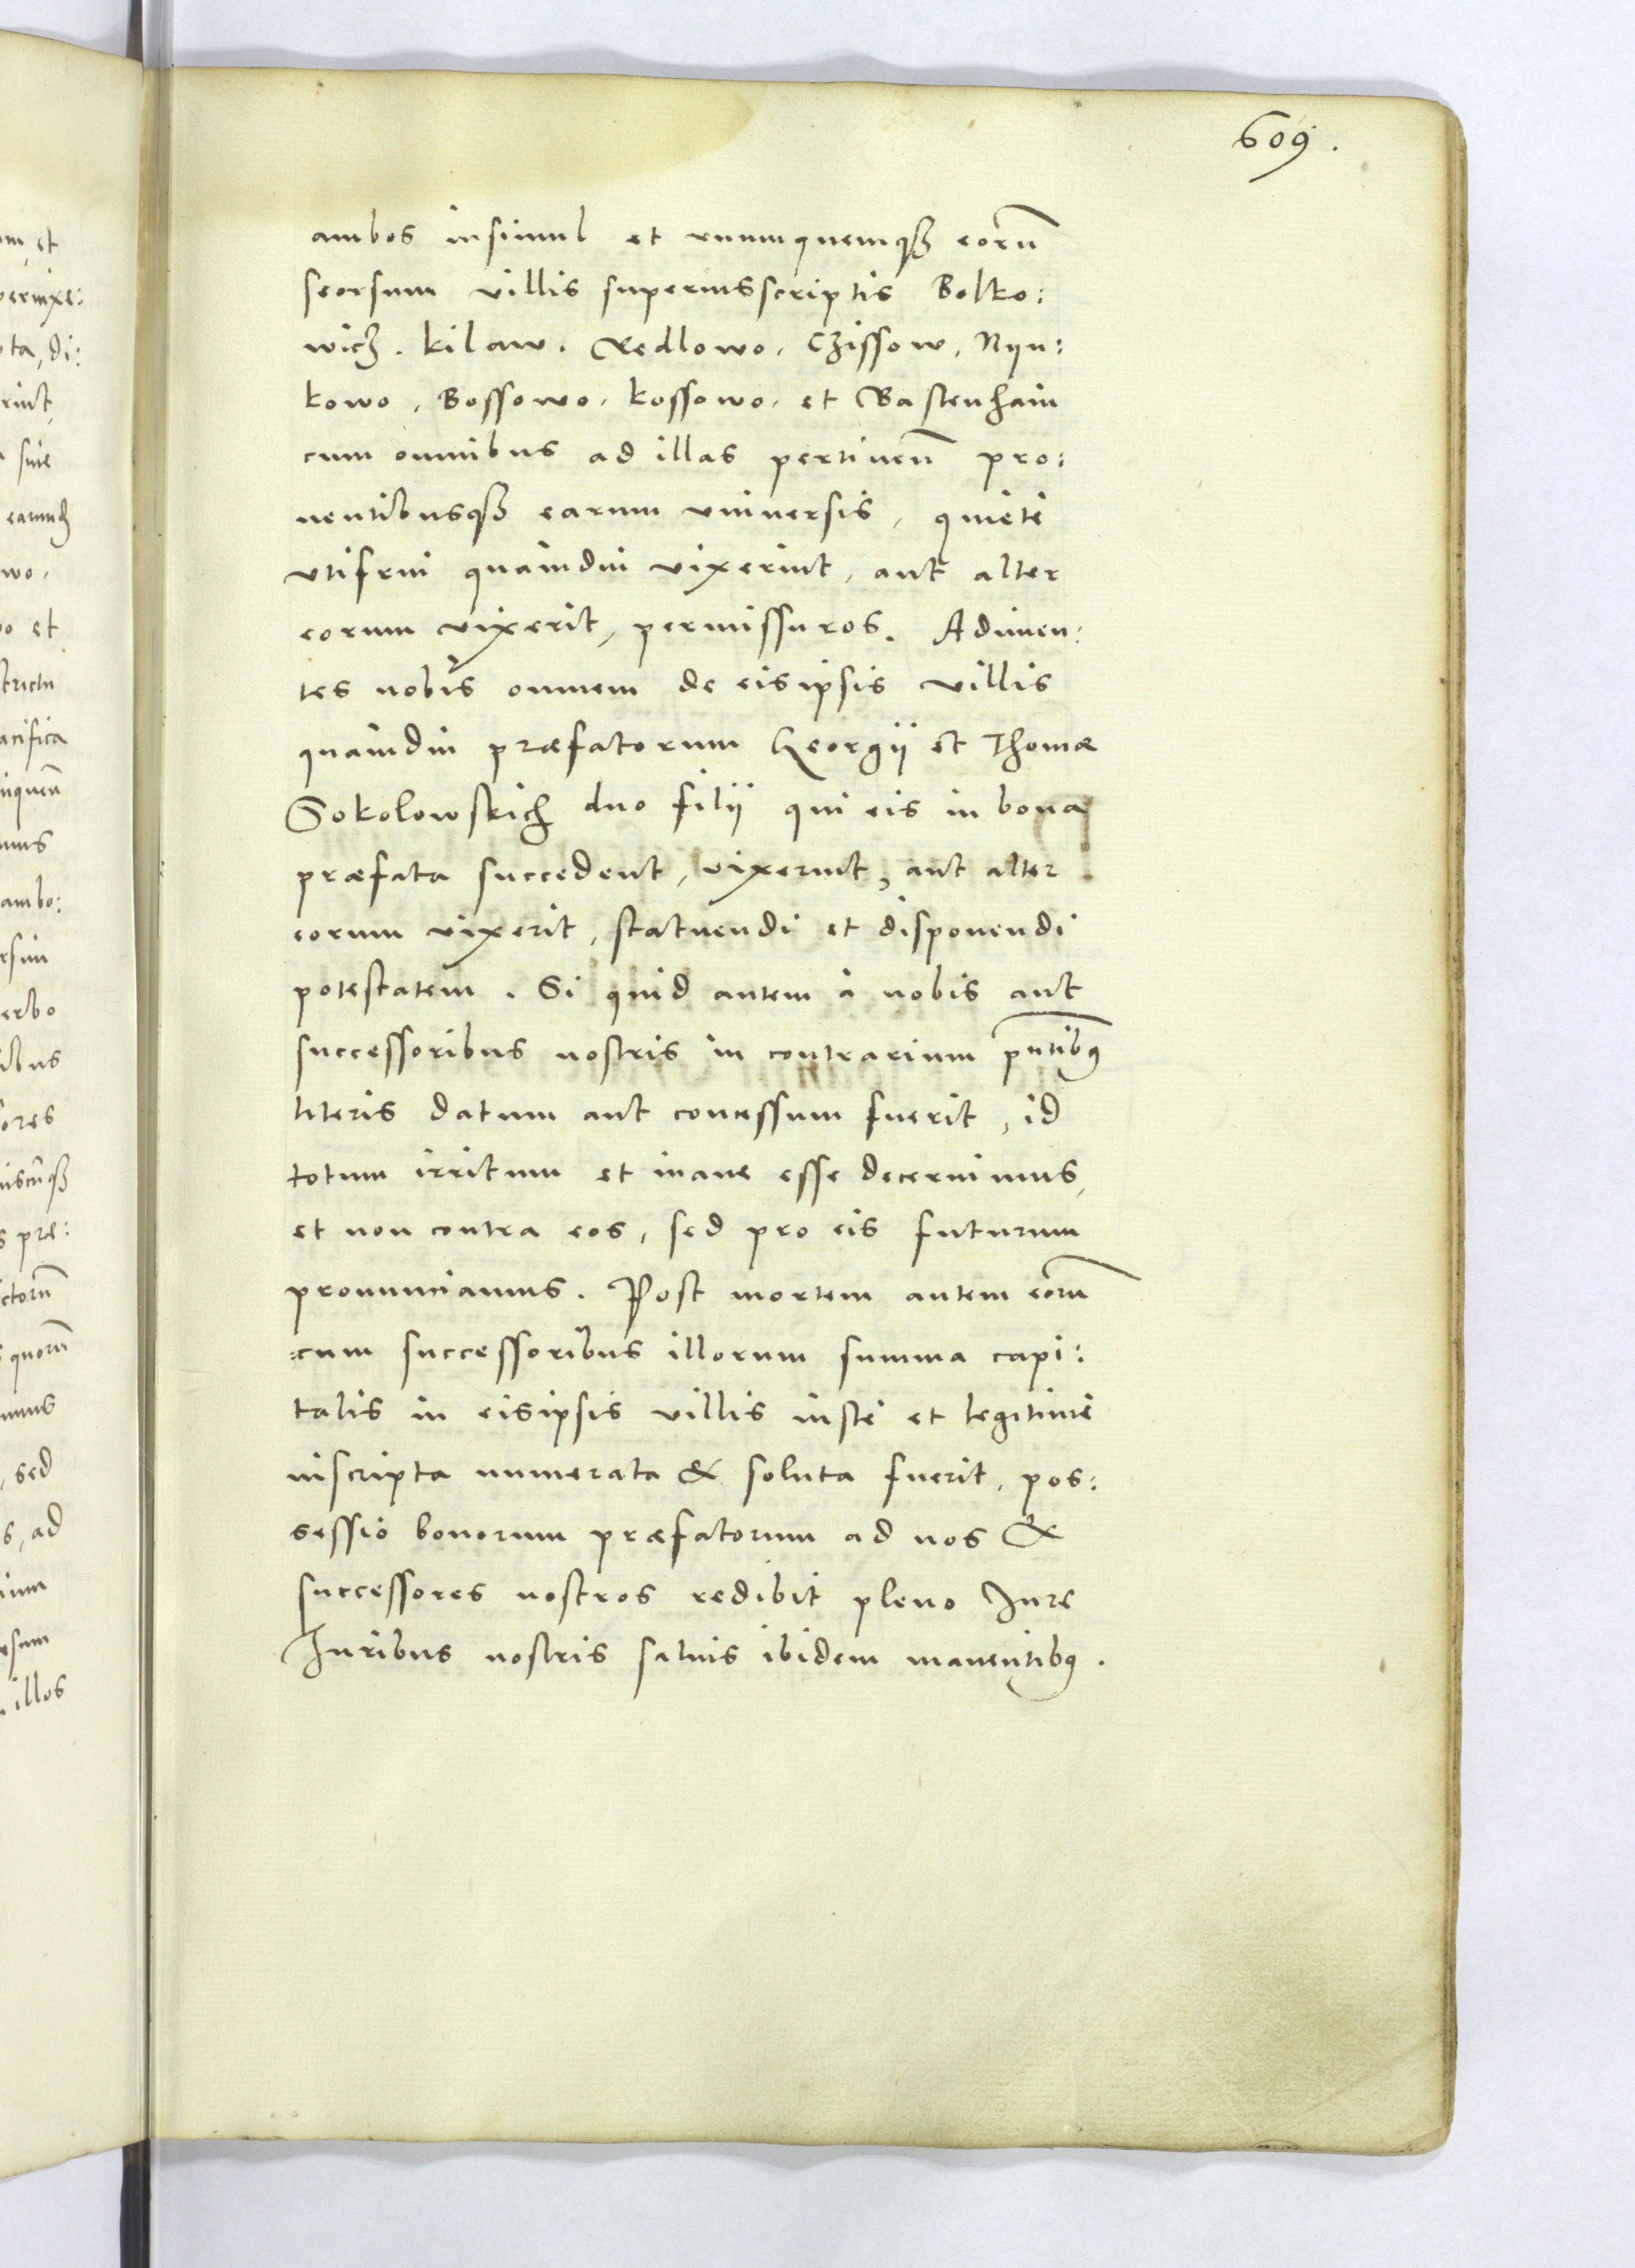 609.
ambos insimul et vnumquemq₃ eorū
seorsum villis superiusscriptis Bolko:
wicz. Kilaw. Redlowo. Czissow, Nyn:
kowo, Bossowo. Kossowo. et Wastenhain
cum omnibus ad illas pertinen̄ pro:
uentibusq₃ earum vniuersis, quiete
vtifrui quamdiu vixerint, aut alter
eorum vixerit, permissuros. Adimen:
tes nobis omnem de eisipsis villis
quamdiu præfatorum Georgii et Thomæ
Sokolowskich duo filii qui eis in bona
præfata succedent, vixerint, aut alter
eorum vixerit, statuendi et disponendi
potestatem. Si quid autem à nobis aut
successoribus nostris in contrarium pn̄tibus
literis datum aut concessum fuerit, id
totum irritum et inane esse decernimus,
et non contra eos, sed pro eis futurum
pronunciamus. Post mortem autem eorū
cum successoribus illorum summa capi:
talis in eisipsis villis iuste et legitime
inscripta numerata & soluta fuerit, pos:
sessio bonorum præfatorum ad nos &
successores nostros redibit pleno Jure
Juribus nostris saluis ibidem manentibus.